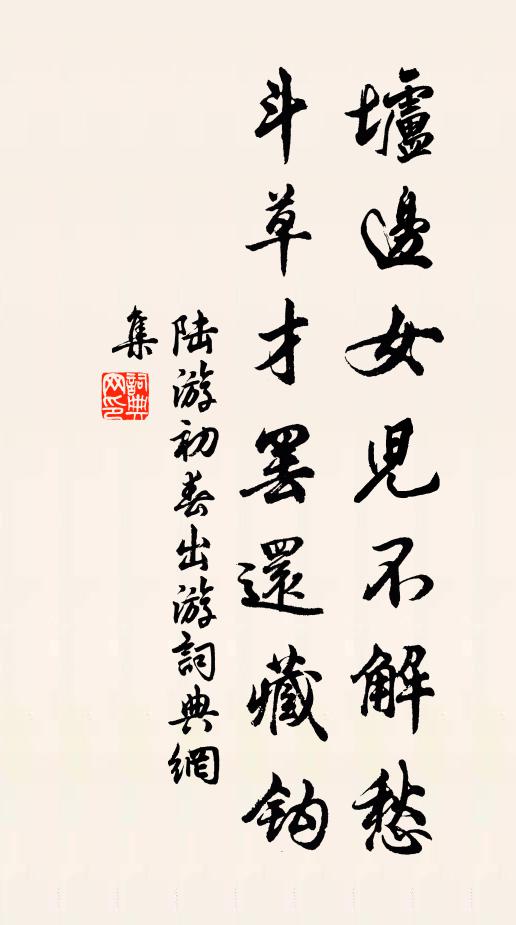 壚邊女兒不解愁
斗草才罷還藏鈎
陆游初春出游詞典網
集
詞典
网印